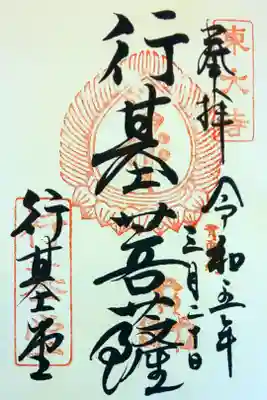 東大寺
奉拝
令和五年
三月二十日
行基菩薩
行基堂